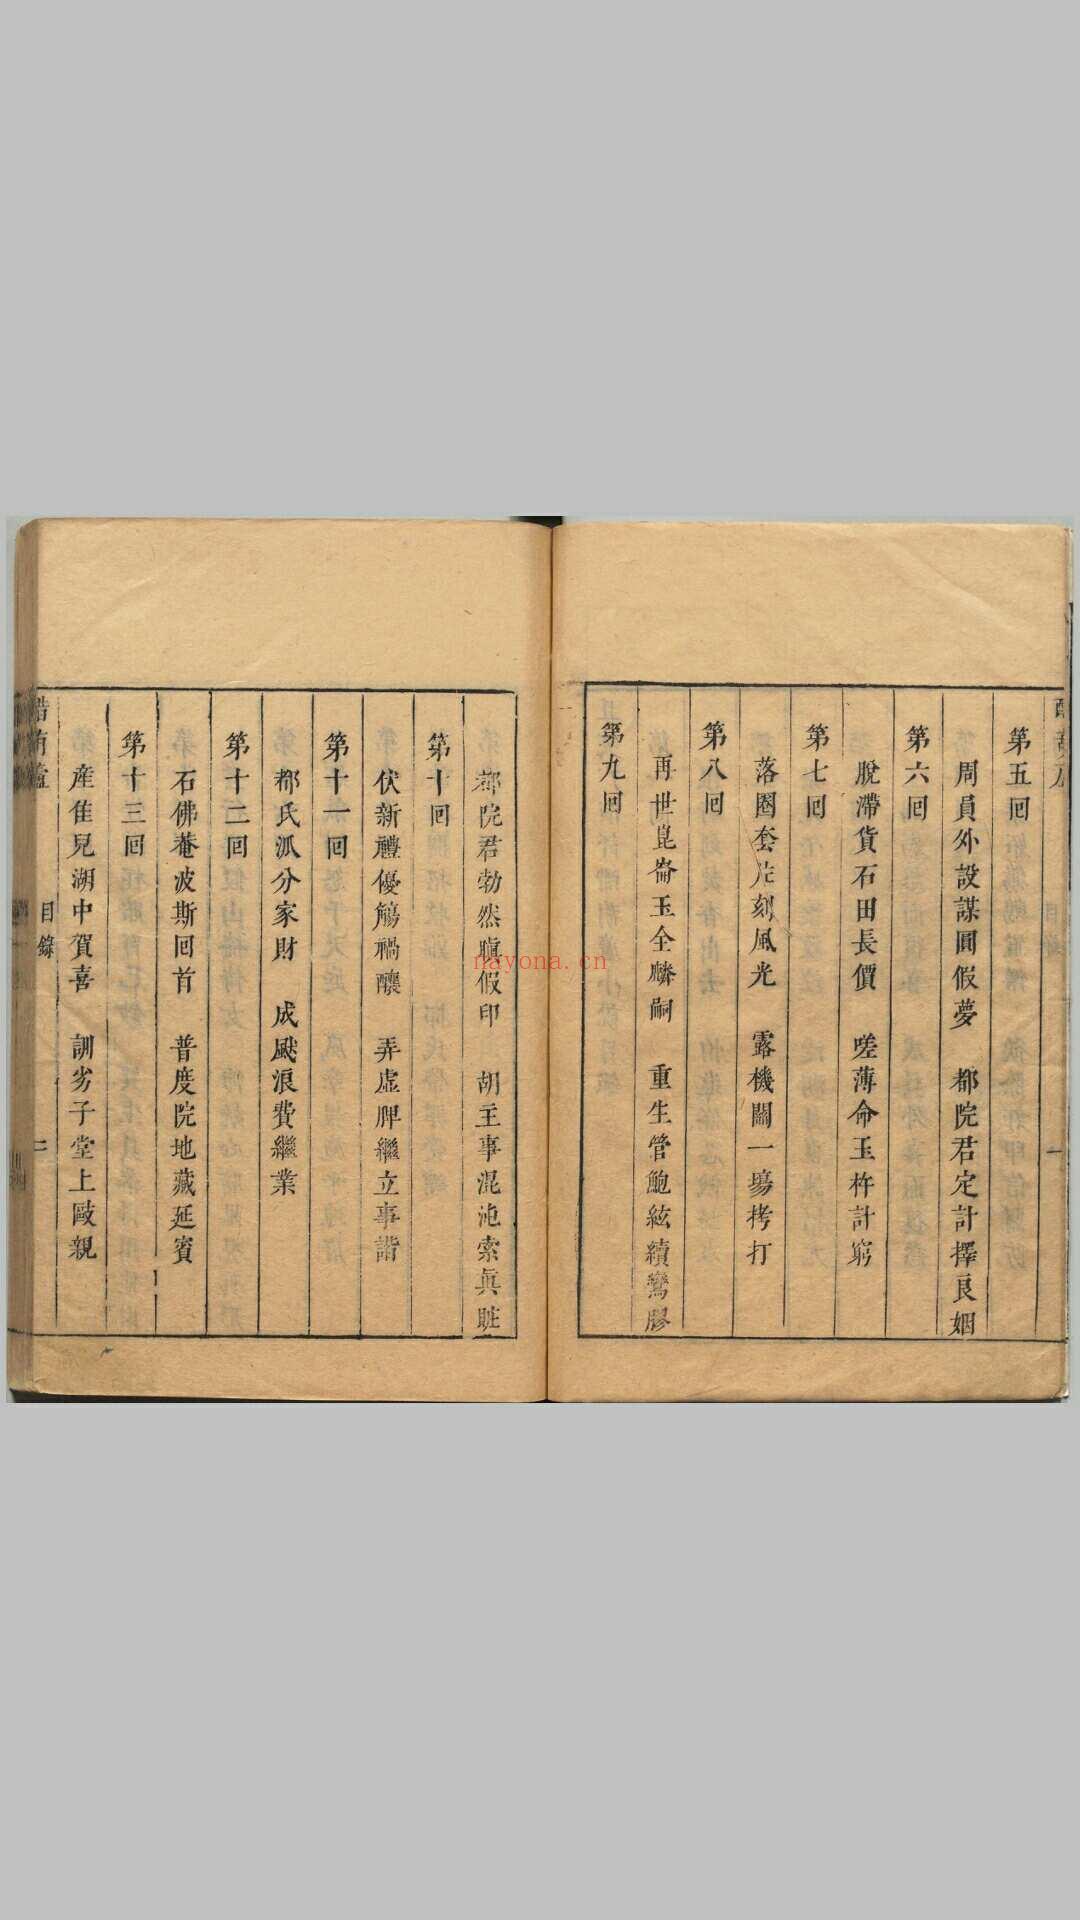 第五回
周員外設謀圓假夢　都院君定計擇良姻
第六回
脫滯貨石田長價　嗟薄命玉杵計窮
第七回
落圈套片刻風光　露機關一場拷打
第八回
再世崑崙玉全麟嗣　重生管鮑絃續鸞膠
第九回
都院君勃然瞋假印　胡主事混沌索眞賍
第十回
伏新禮優觴禍釀　弄虛脾繼立事諧
第十一回
都氏派分家財　成飈浪費繼業
第十二回
石佛菴波斯回首　普度院地藏延賓
第十三回
產佳兒湖中賀喜　訓劣子堂上毆親
目錄　二
nayona.cn